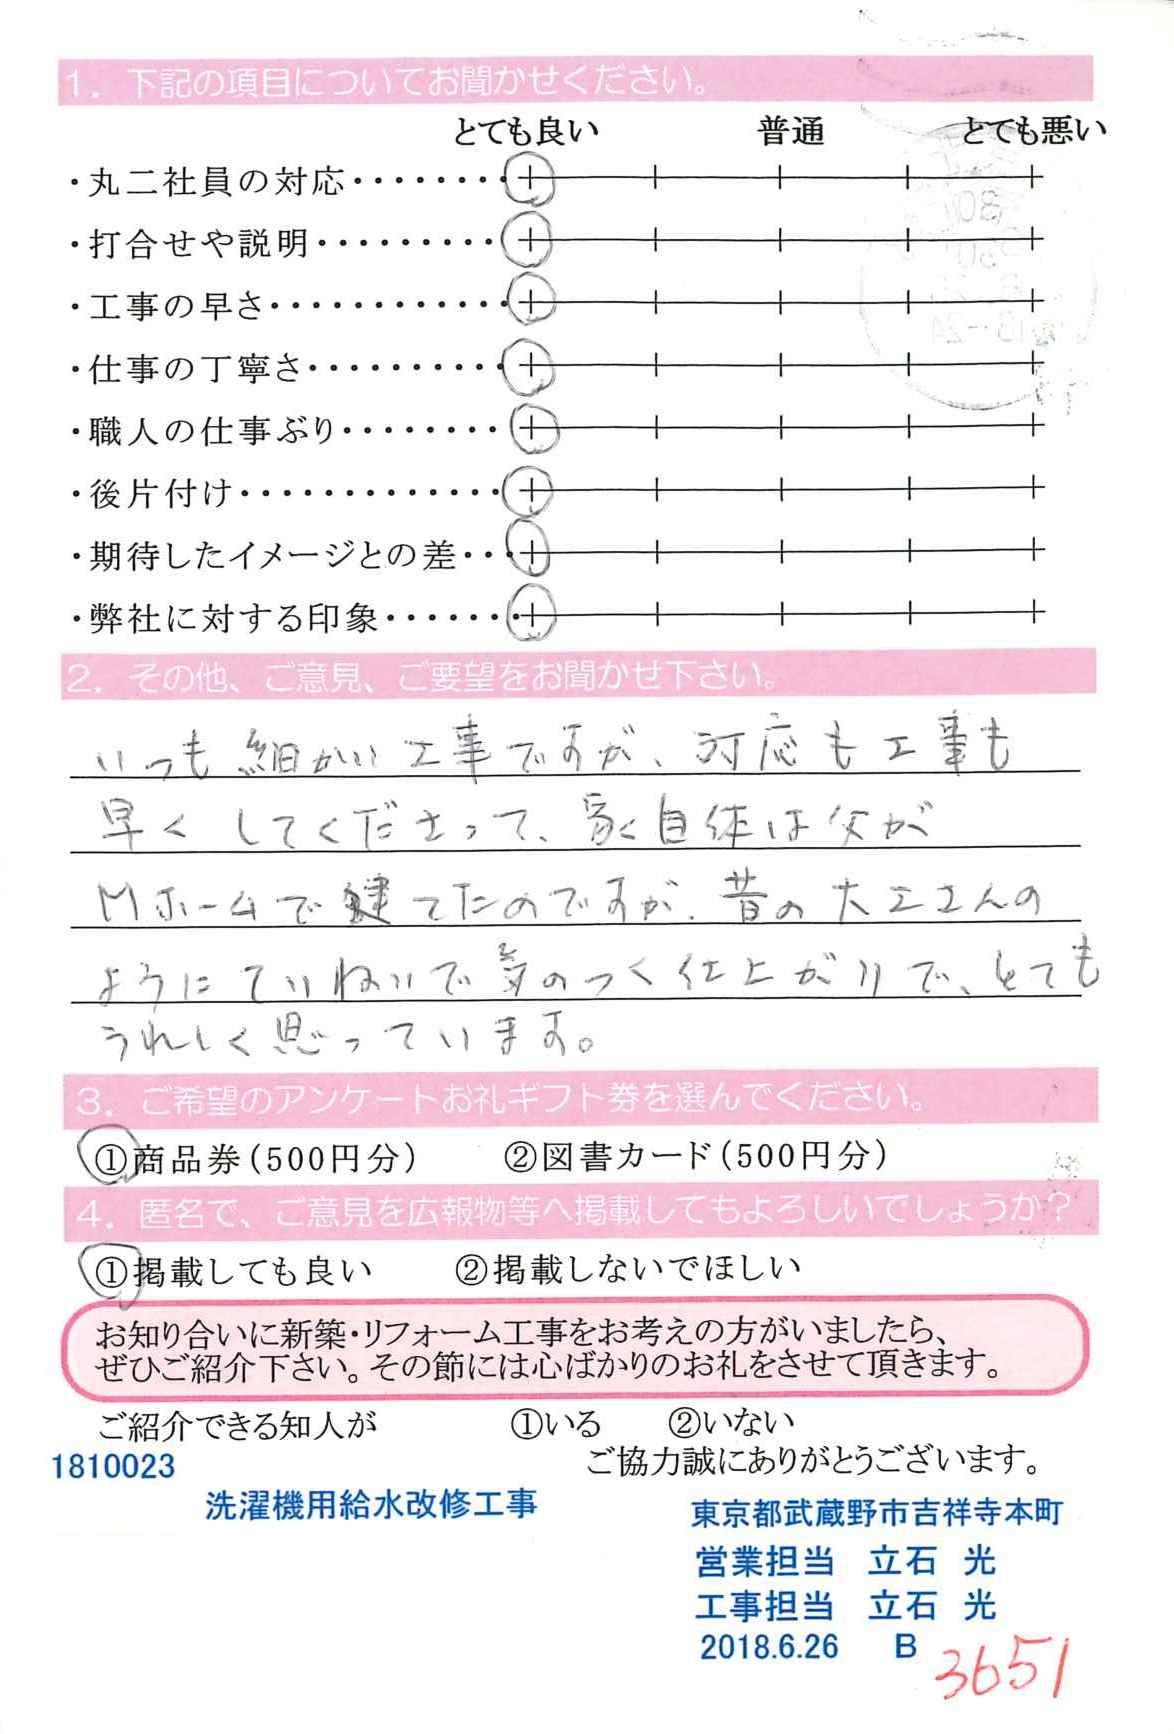 1. 下記の項目についてお聞かせください。
とても良い 普通 とても悪い
・丸二社員の対応········
・打合せや説明··········
・工事の早さ·············
・仕事の丁寧さ···········
・職人の仕事ぶり·········
・後片付け··············
・期待したイメージとの差···
・弊社に対する印象·······
2. その他、ご意見、ご要望をお聞かせ下さい。
いつも細かい工事ですが、対応も工事も
早くしてくださって、家自体は父が
Mホームで建てたのですが、昔の大工さんの
ようにていねいで気のつく仕上がりで、とても
うれしく思っています。
3. ご希望のアンケートお礼ギフト券を選んでください。
①商品券(500円分) ②図書カード(500円分)
4. 匿名で、ご意見を広報物等へ掲載してもよろしいでしょうか?
①掲載しても良い ②掲載しないでほしい
お知り合いに新築・リフォーム工事をお考えの方がいましたら、
ぜひご紹介下さい。その節には心ばかりのお礼をさせて頂きます。
ご紹介できる知人が ①いる ②いない
1810023 ご協力誠にありがとうございます。
洗濯機用給水改修工事 東京都武蔵野市吉祥寺本町
営業担当 立石 光
工事担当 立石 光
2018.6.26 B 3651